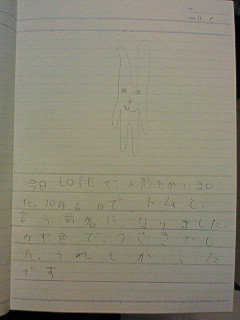 今日 LOFEで人形をかいまし
た。10月6日で トムと
言う前名に なりました。
みず色で、うさぎでし
た。うれしかった
です